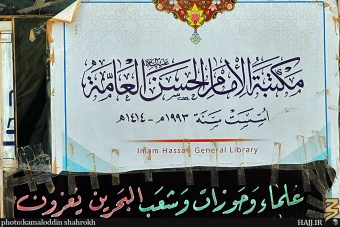 مكتبة الإمام الحسن العامة
أسست سنة ١٩٩٣م - ١٤١٤هـ
Imam Hassan General Library
علماء وحوزات وشعب البحرين يعزون
photo:kamaloddin shahrokh
HAJJ.IR